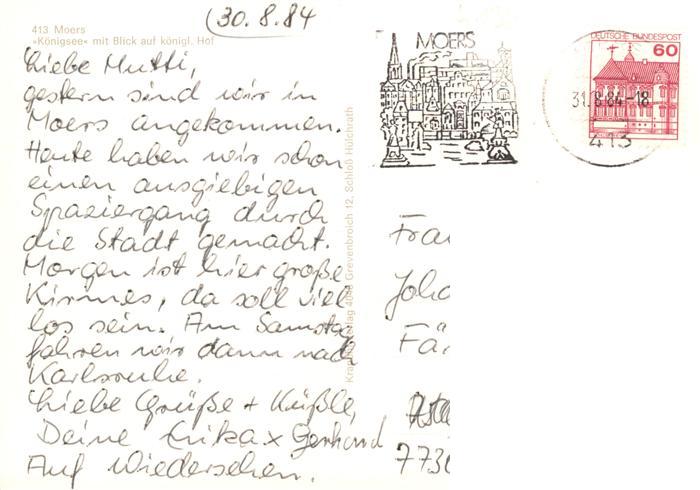 (30.8.84
413 Moers
»Königsee« mit Blick auf königl. Hof
Liebe Mutti,
gestern sind wir in
Moers angekommen.
Heute haben wir schon
einen ausgiebigen
Spaziergang durch
die Stadt gemacht.
Morgen ist hier große
Kirmes, da soll viel
los sein. Am Samstag
fahren wir dann nach
Karlsruhe.
Liebe Grüße + Küßle,
Deine Erika x Gerhard
Auf Wiedersehen.
4048 Grevenbroich 12, Schloß Hülchrath
MOERS
DEUTSCHE BUNDESPOST
60
31.8.84-18
413
Frau
Joha
Fär
773